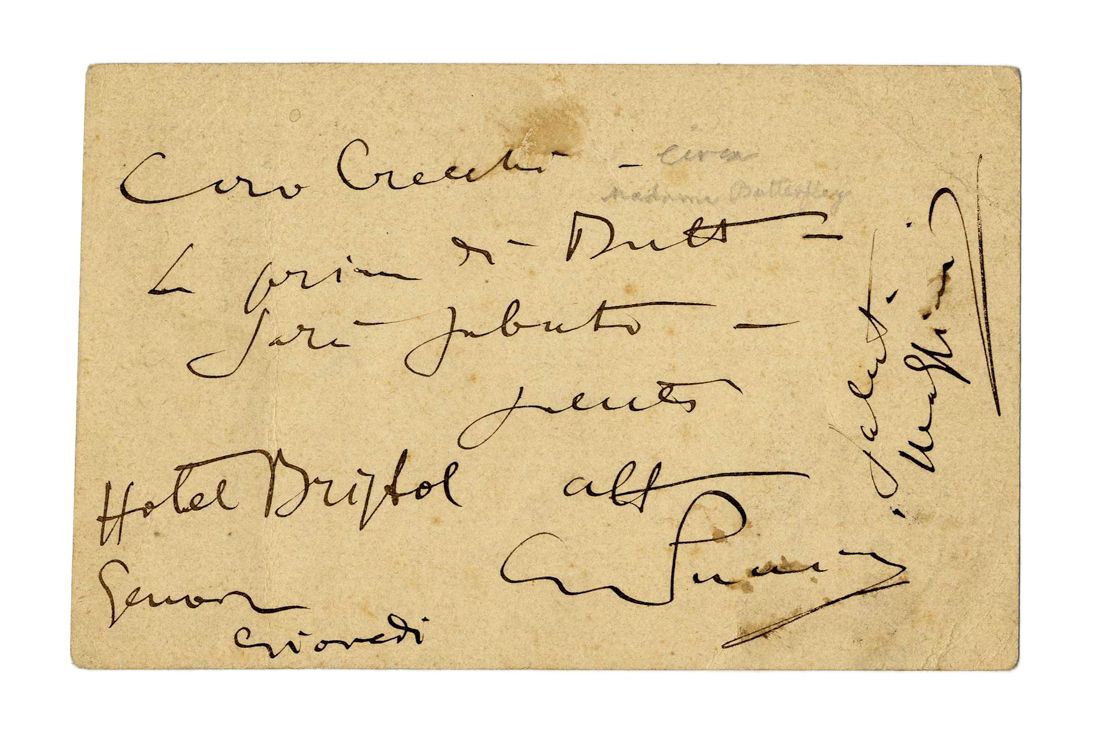 Caro Cecchi –
circa
Madame Butterfley
La prima di Butt –
sarà sabato –
Hotel Bristol
aff
Genova
Giovedi
GPuccini
Saluti